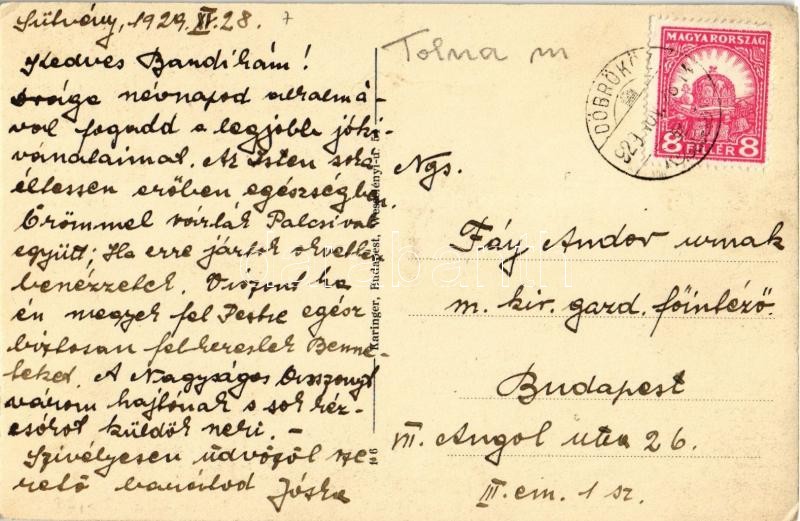 Sütvény, 1929. XI. 28.
Kedves Bandikám!
Drága névnapod alkalmá-
val fogadd a legjobb jókí-
vánataimat. Az Isten soká
éltessen erőben egészségben.
Örömmel várlak Palcsival
együtt; Ha erre jártok okvetlen
benézzetek. Viszont ha
én megyek fel Pestre egész
biztosan felkereslek Benne-
teket. A Nagyságos Asszonyt
várom hajtónak s sok kéz-
csókot küldök neki. –
Szívélyesen üdvözöl sze-
rető barátod Jóska
Karinger, Budapest, Wesselényi-u.
106
Tolna m
DÖBRÖKÖZ
929
MAGYARORSZÁG
8 FILLÉR 8
Ngs.
Fáy Andor urnak
m. kir. gazd. főintéző.
Budapest
VII. Angol utca 26.
III. em. 1 sz.